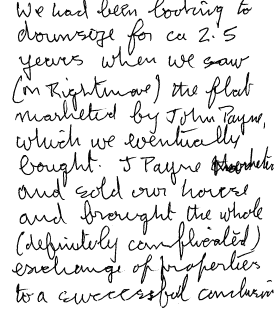 We had been looking to
downsize for ca 2.5
years when we saw
(on Rightmove) the flat
marketed by John Payne,
which we eventually
bought. J Payne
and sold our house
and brought the whole
(definitely complicated)
exchange of properties
to a successful conclusion